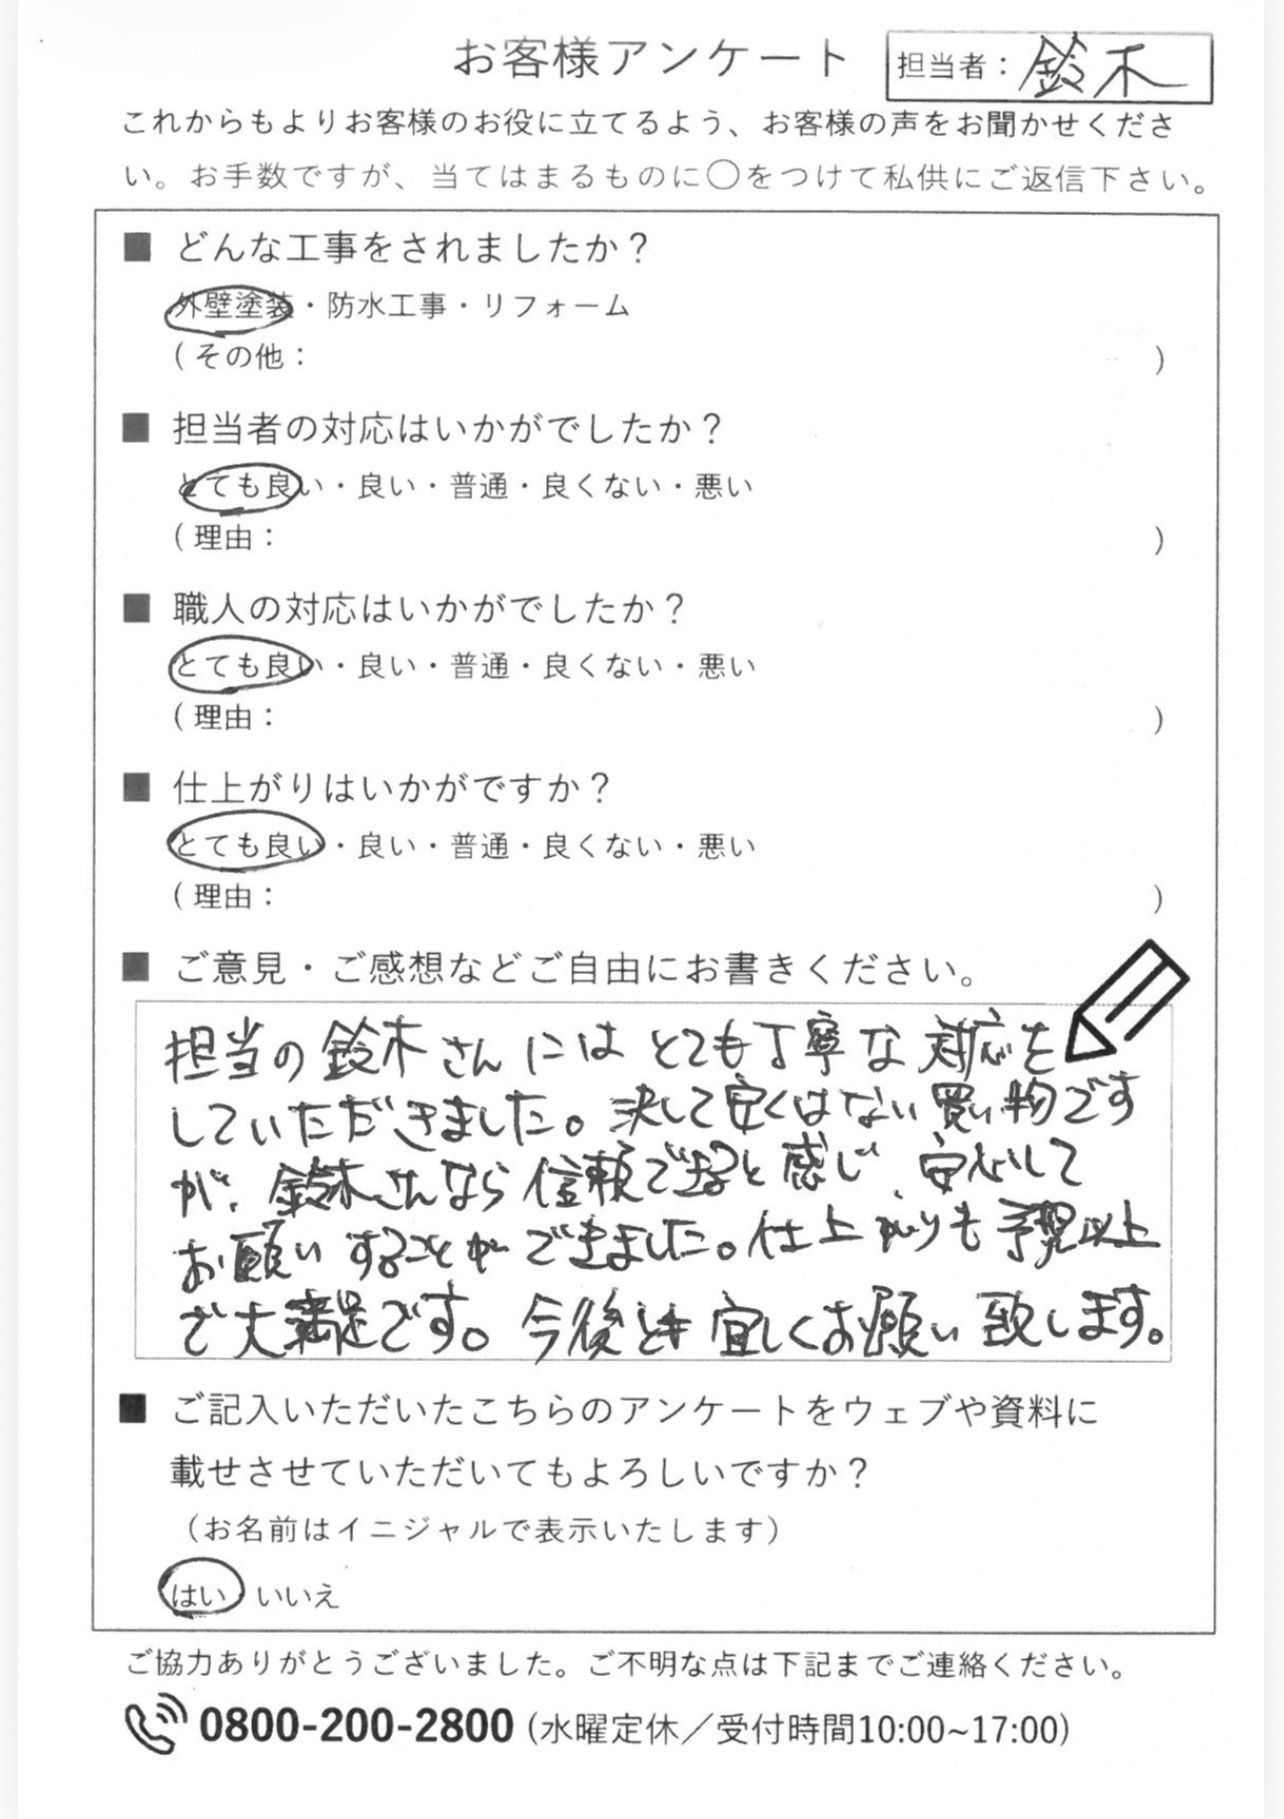 お客様アンケート
担当者：鈴木
これからもよりお客様のお役に立てるよう、お客様の声をお聞かせくださ
い。お手数ですが、当てはまるものに〇をつけて私供にご返信下さい。
■ どんな工事をされましたか？
外壁塗装・防水工事・リフォーム
(その他： )
■ 担当者の対応はいかがでしたか？
とても良い・良い・普通・良くない・悪い
(理由： )
■ 職人の対応はいかがでしたか？
とても良い・良い・普通・良くない・悪い
(理由： )
■ 仕上がりはいかがですか？
とても良い・良い・普通・良くない・悪い
(理由： )
■ ご意見・ご感想などご自由にお書きください。
担当の鈴木さんにはとても丁寧な対応を
していただきました。決して安くはない買い物です
が、鈴木さんなら信頼できると感じ、安心して
お願いすることができました。仕上がりも予想以上
で大満足です。今後とも宜しくお願い致します。
■ ご記入いただいたこちらのアンケートをウェブや資料に
載せさせていただいてもよろしいですか？
（お名前はイニシャルで表示いたします）
はい いいえ
ご協力ありがとうございました。ご不明な点は下記までご連絡ください。
0800-200-2800 (水曜定休／受付時間10:00~17:00)